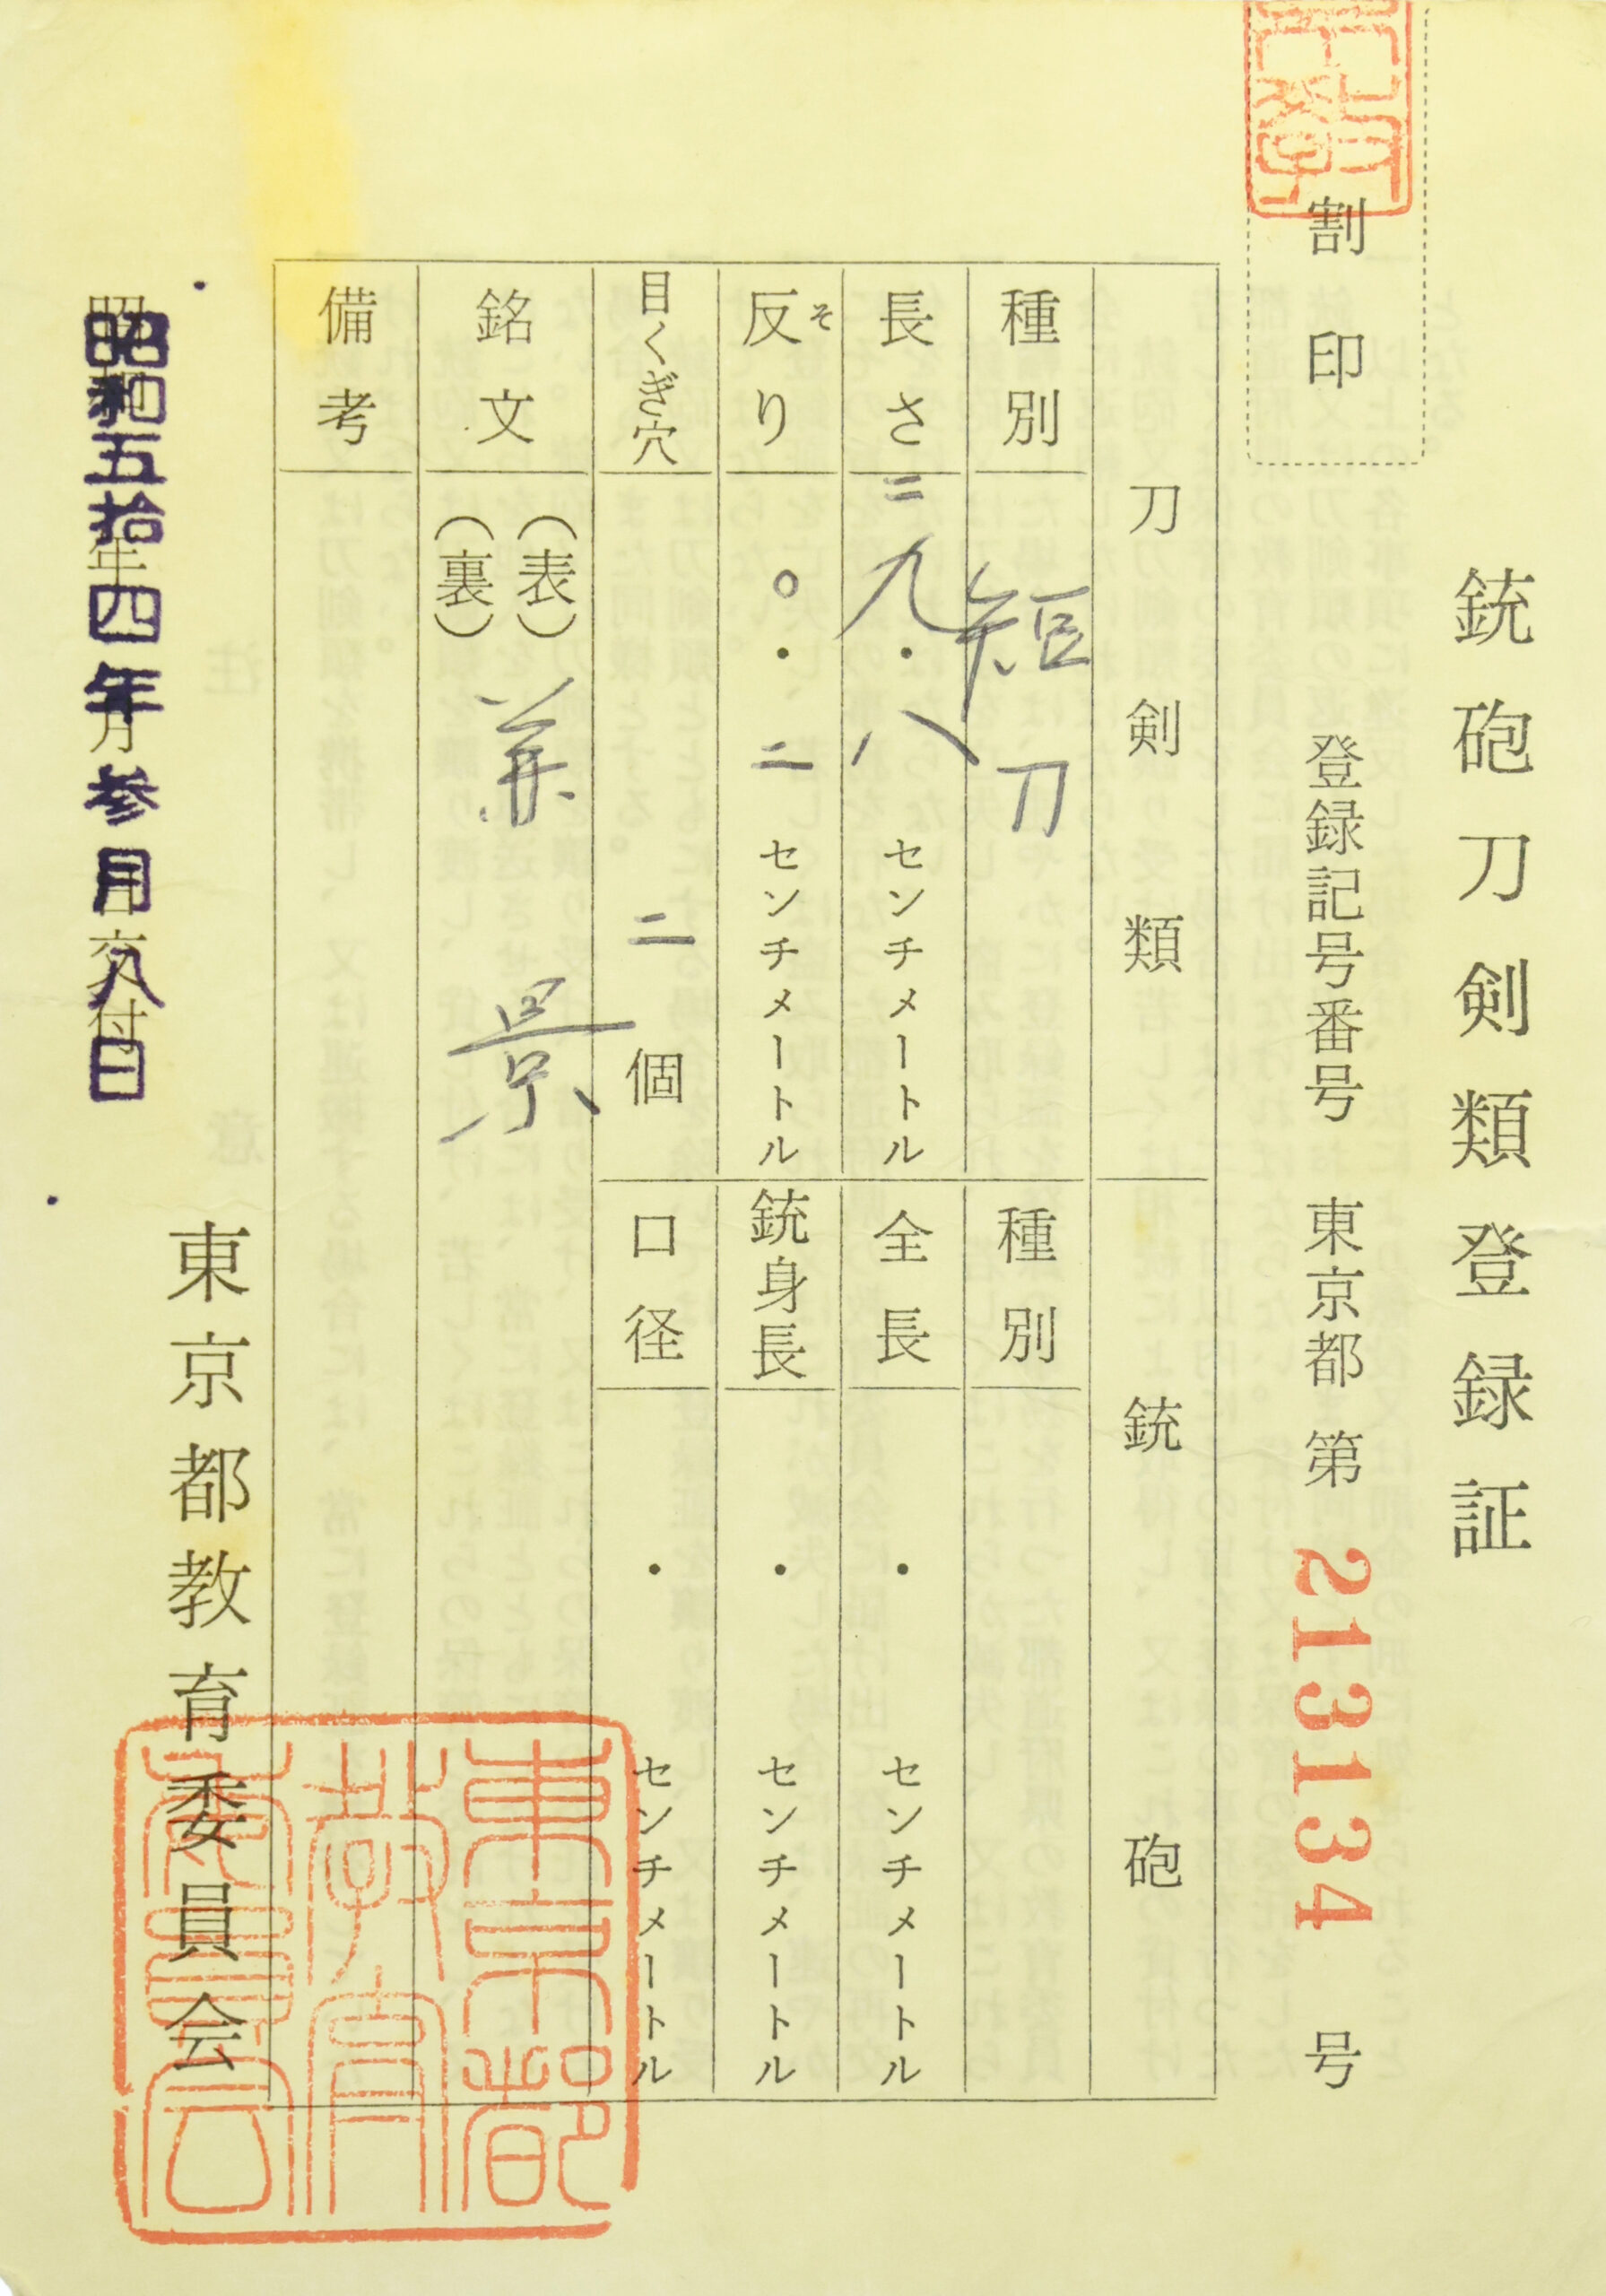 銃砲刀剣類登録証
割印
登録記号番号 東京都 第 213134 号
刀剣類 銃砲
種別 短刀
種別
長さ 二九・八センチメートル
全長 ・ センチメートル
反り ○・二センチメートル
そ
銃身長 ・ センチメートル
目くぎ穴 二個
口径 ・ センチメートル
銘文 (表)
(裏)
兼景
備考
昭和五拾四年参月八日
昭和 年 月 日交付
東京都教育委員会
東京都教育委員会